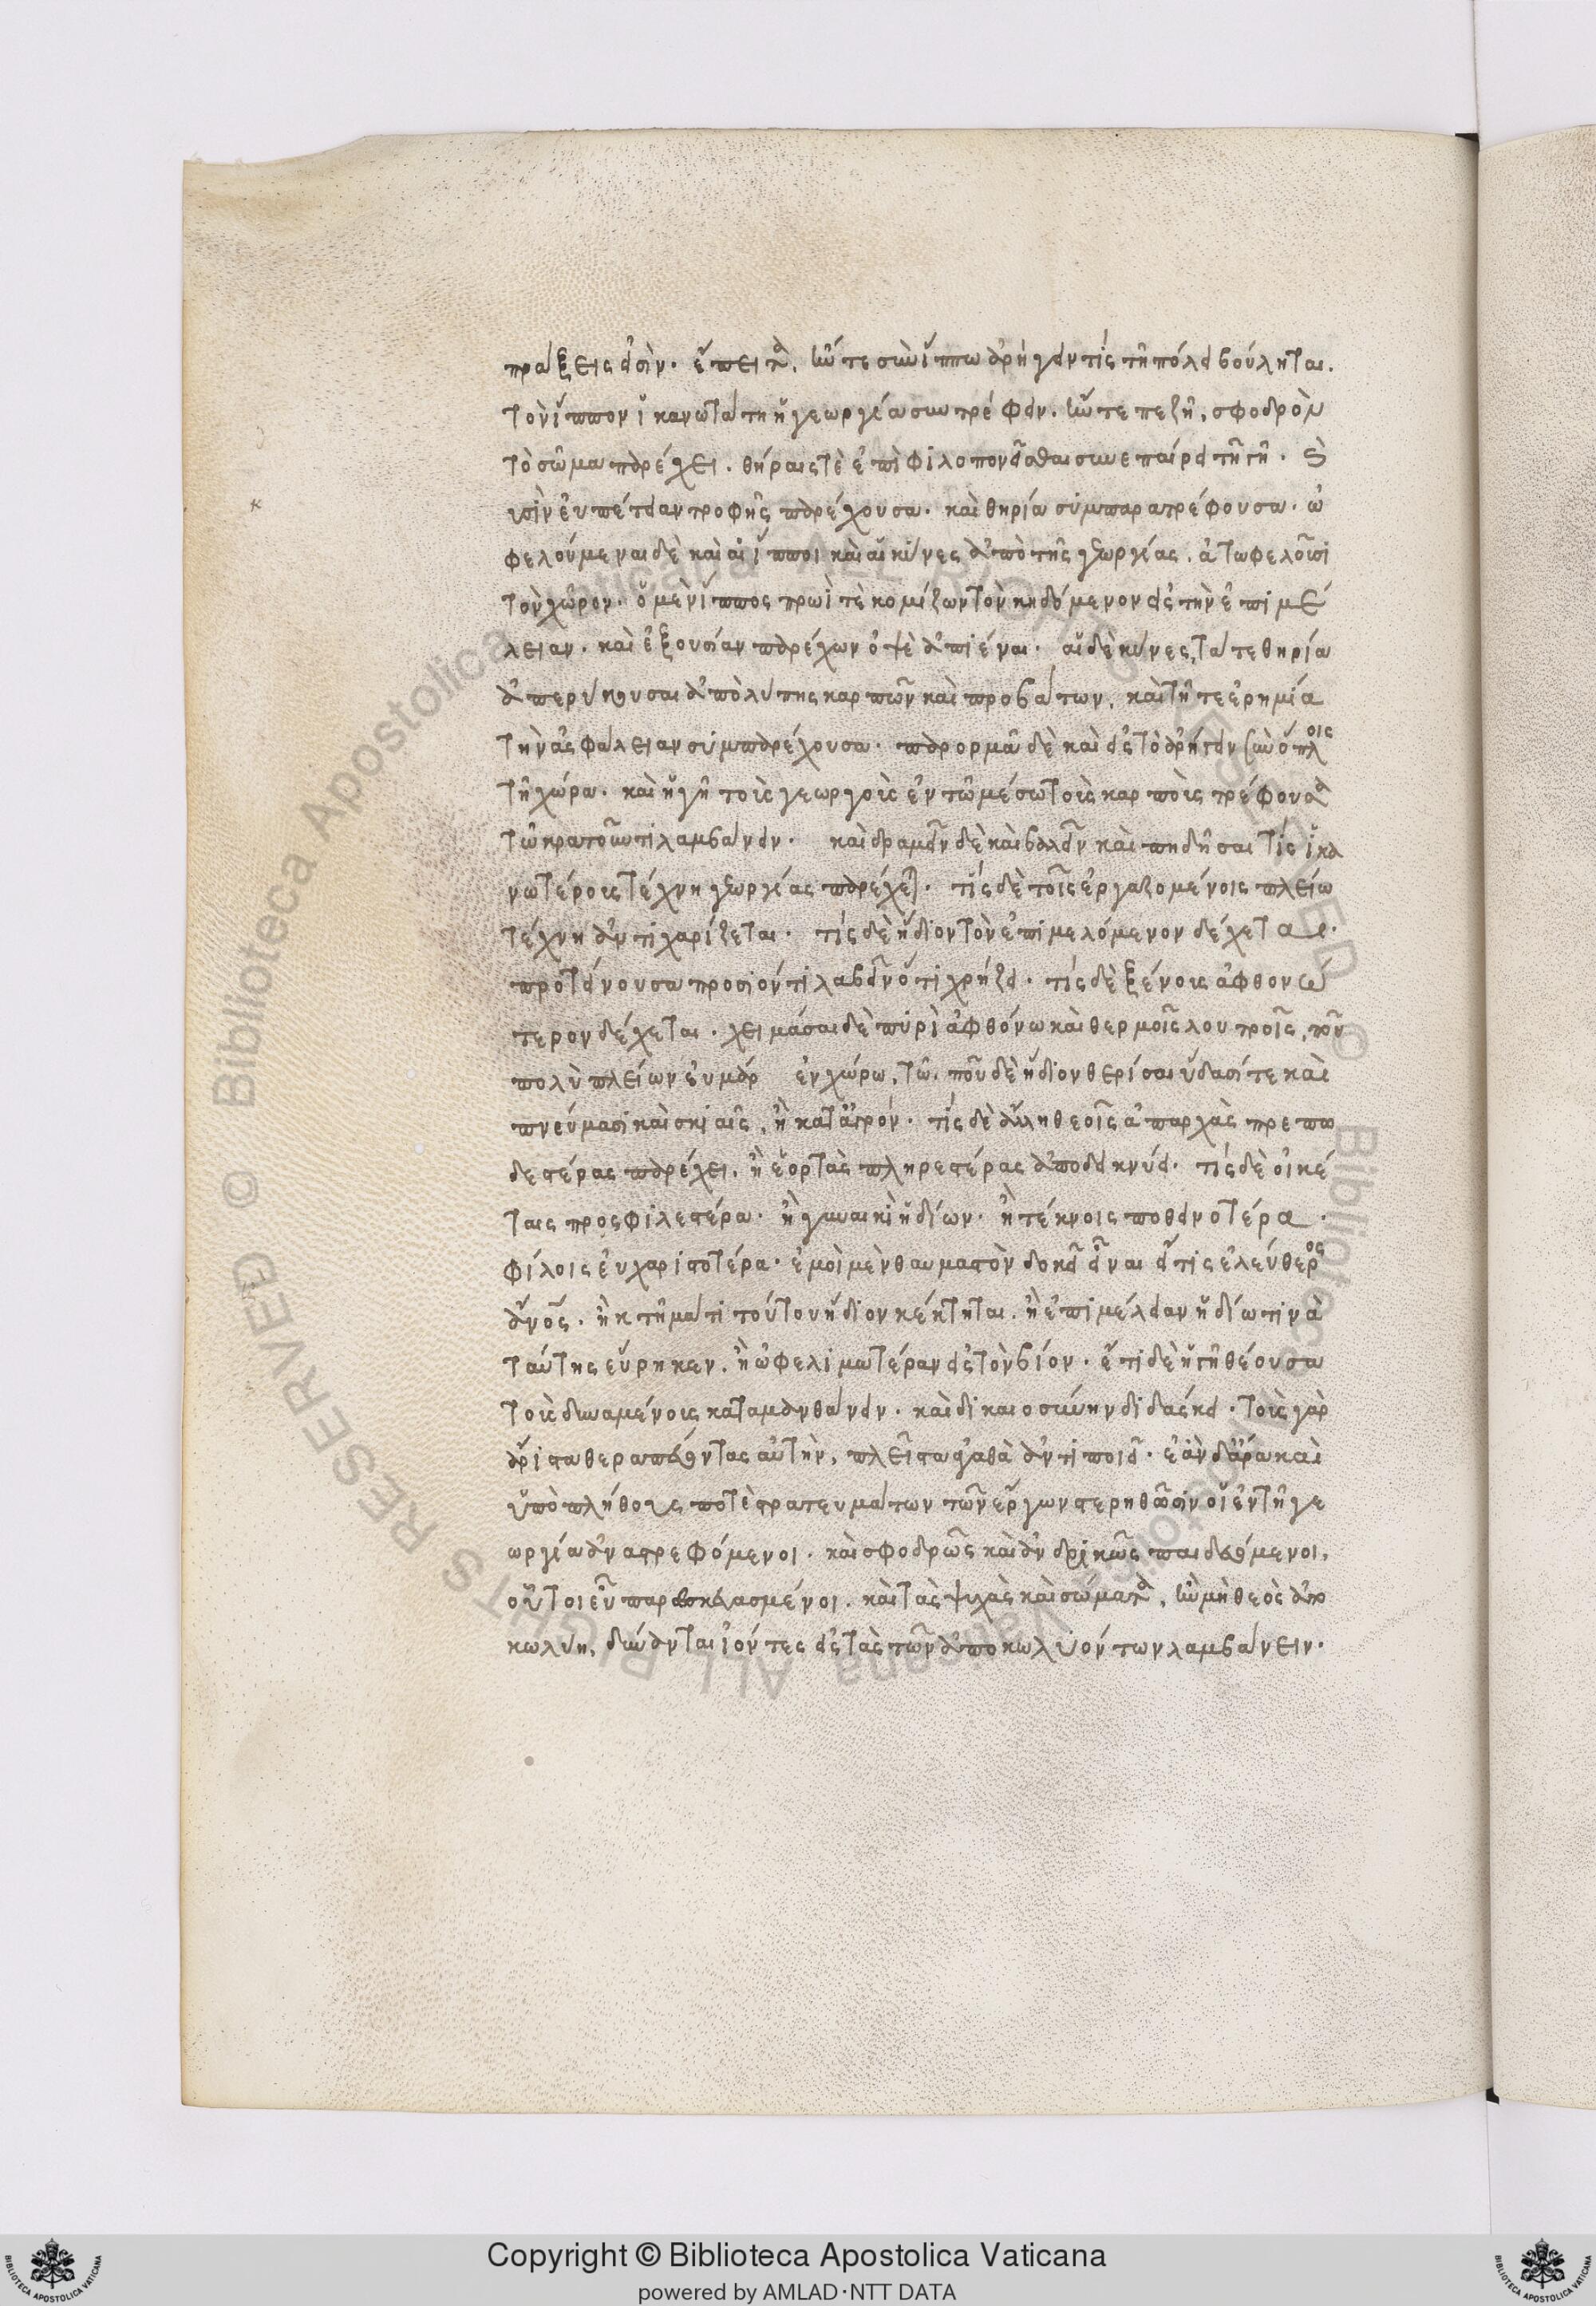 πράξεις εἰσὶν. ἔπειτα, ἤν τε σὺν ἵππω ἀρήγειν τίς τῆ πόλει βούληται.
τὸν ἵππον ἱκανωτάτη ἡ γεωργία συντρέφειν. ἤν τε πεζῆ, σφοδρὸν
τὸ σῶμα παρέχει. θήραις τὲ ἐπιφιλοπονεῖσθαι συνεπαίρει τῆ γῆ. κυ
σὶν εὐπέτειαν τροφῆς παρέχουσα. καὶ θηρία συμπαρατρέφουσα. ὠ
φελούμεναι δὲ καὶ αἱ ἵπποι καὶ αἱ κύνες ἀπὸ τῆς γεωργίας. ἀντωφελοῦσι
τὸν χῶρον. ὁ μὲν ἵππος πρωΐ τὲ κομίζων τὸν κηδόμενον εἰς τὴν ἐπιμέ
λειαν. καὶ ἐξουσίαν παρέχων ὀψὲ ἀπιέναι. αἱ δὲ κύνες, τά τε θηρία
ἀπερύκουσαι ἀπὸ λύμης καρπῶν καὶ προβάτων. καὶ τῆ τε ἐρημία
τὴν ἀσφάλειαν συμπαρέχουσα. παρορμᾶ δὲ καὶ εἰς τὸ ἀρήγειν σὺν ὅπλοις
τῆ χώρα. καὶ ἡ γῆ τοὺς γεωργοὺς ἐν τῶ μέσω τοὺς καρποὺς τρέφουσα
τῶ κρατοῦντι λαμβάνειν. καὶ δραμεῖν δὲ καὶ βαλεῖν καὶ πηδῆσαι τίς ἱκα
νωτέρους τέχνη γεωργίας παρέχεται. τίς δὲ τοῖς ἐργαζομένοις πλείω
τέχνη ἀντιχαρίζεται. τίς δὲ ἥδιον τὸν ἐπιμελόμενον δέχεται.
προτείνουσα προσιόντι λαβεῖν ὅτι χρήζει. τίς δὲ ξένους ἀφθονώ
τερον δέχεται. χειμάσαι δὲ πυρὶ ἀφθόνω καὶ θερμοῖς λουτροῖς, ποῦ
πολὺ πλείων εὐμάρ ἐν χώρω, τῶ. ποῦ δὲ ἥδιον θερίσαι ὕδασί τε καὶ
πνεύμασι καὶ σκιαῖς, ἢ κατ᾽ ἀγρόν. τίς δὲ ἄλλη θεοῖς ἀπαρχὰς πρεπω
δεστέρας παρέχει. ἢ ἑορτὰς πληρεστέρας ἀποδεικνύει. τίς δὲ οἰκέ
ταις προσφιλεστέρα. ἢ γυναικὶ ἡδίων. ἢ τέκνοις ποθεινοτέρα.
φίλοις εὐχαριστοτέρα. ἐμοὶ μὲν θαυμαστὸν δοκεῖ εἶναι εἴ τις ἐλεύθερος
ἄνος. ἢ κτῆμά τι τούτου ἥδιον κέκτηται. ἢ ἐπιμέλειαν ἡδίω τινὰ
ταύτης εὕρηκεν. ἢ ὠφελιμωτέραν εἰς τὸν βίον. ἔτι δὲ ἡ γῆ θέουσα
τοὺς δυναμένους καταμανθάνειν. καὶ δικαιοσύνην διδάσκει. τοὺς γὰρ
ἄριστα θεραπεύοντας αὐτὴν, πλεῖστα ἀγαθὰ ἀντιποιεῖ. ἐὰν δ᾽ ἄρα καὶ
ὑπὸ πλήθους ποτὲ στρατευμάτων τῶν ἔργων στερηθῶσιν οἱ ἐν τῆ γε
ωργία ἀναστρεφόμενοι. καὶ σφοδρῶς καὶ ἀνδρικῶς παιδευόμενοι.
οὗτοι εὖ παρεσκευασμένοι. καὶ τὰς ψυχὰς καὶ σώματα, ἢν μὴ θεὸς ἀπο
κωλύη, δύνανται ἰόντες εἰς τὰς τῶν ἀποκωλυόντων λαμβάνειν.